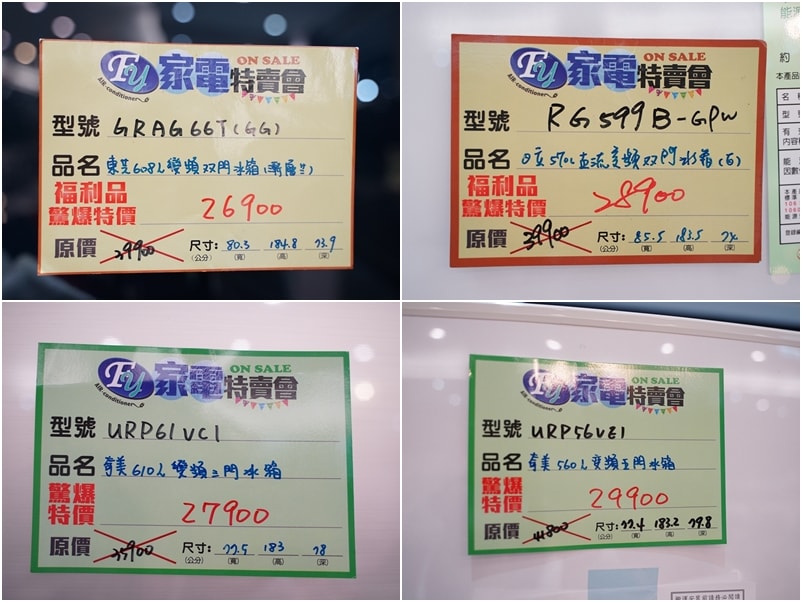 Fy 家電特賣會 ON SALE
AIR-conditioner
型號 GRAG66T(GG)
品名 東芝608L變頻双門冰箱
福利品
驚爆特價 26900
原價 尺寸: 80.3 184.8 73.9
(公分) (寬) (高) (深)
Fy 家電特賣會 ON SALE
AIR-conditioner
型號 RG599B-GPW
品名 日立570L直流變頻双門冰箱
福利品
驚爆特價 28900
原價 39900 尺寸: 85.5 183.5
(公分) (寬) (高) (深)
能源
約
本產品
名稱
型號
內容積
能源
Fy 家電特賣會 ON SALE
AIR-conditioner
型號 URP61VC1
品名 奇美610L變頻三門冰箱
驚爆
特價 27900
原價 35900 尺寸: 77.5 183 78
(公分) (寬) (高) (深)
Fy 家電特賣會 ON SALE
AIR-conditioner
型號 URP56VE1
品名 奇美560L變頻五門冰箱
驚爆
特價 29900
原價 41800 尺寸: 77.4 183.2 79.8
(公分) (寬) (高) (深)